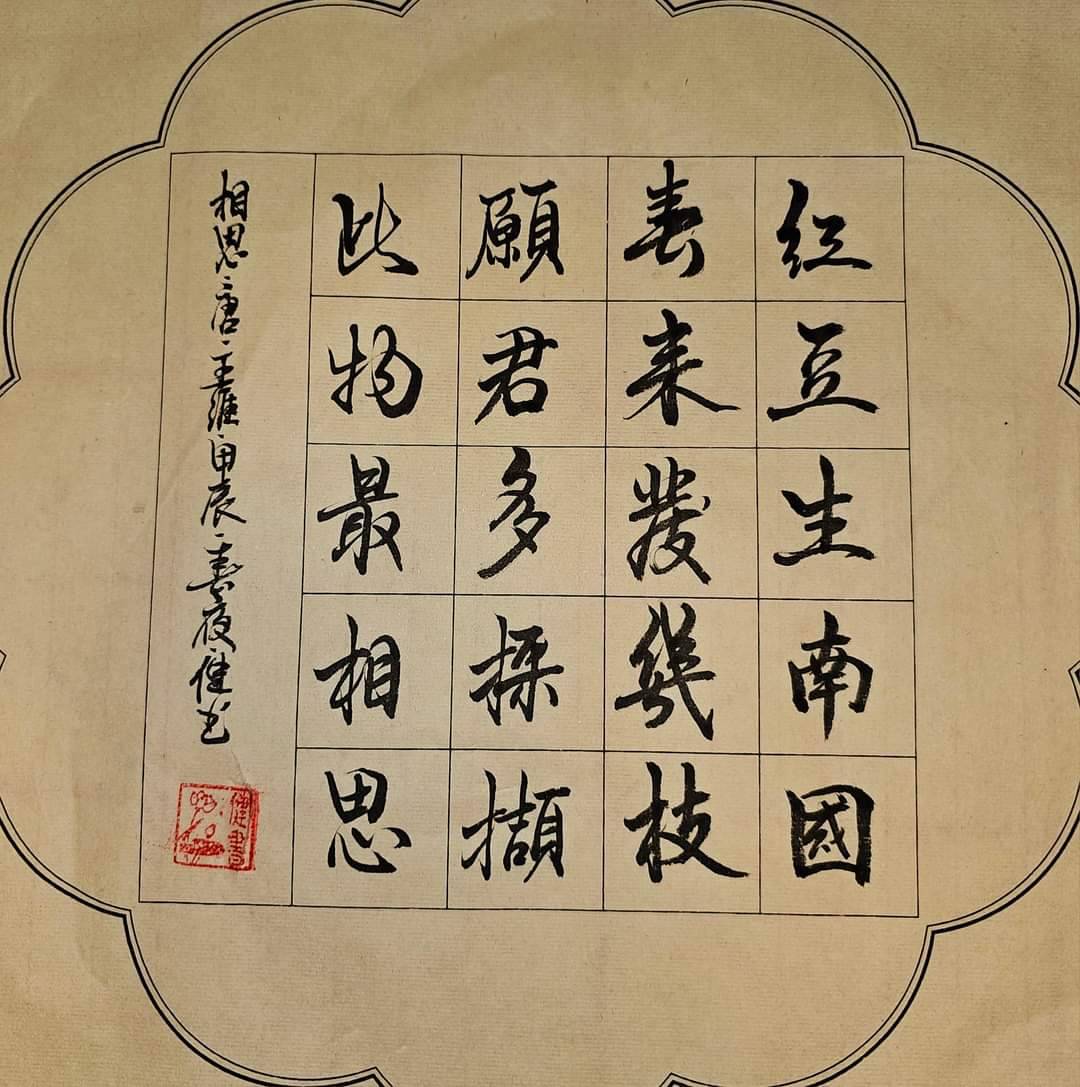 红豆生南國
春来發幾枝
願君多採擷
此物最相思
相思唐王維甲辰春夜健书
健書